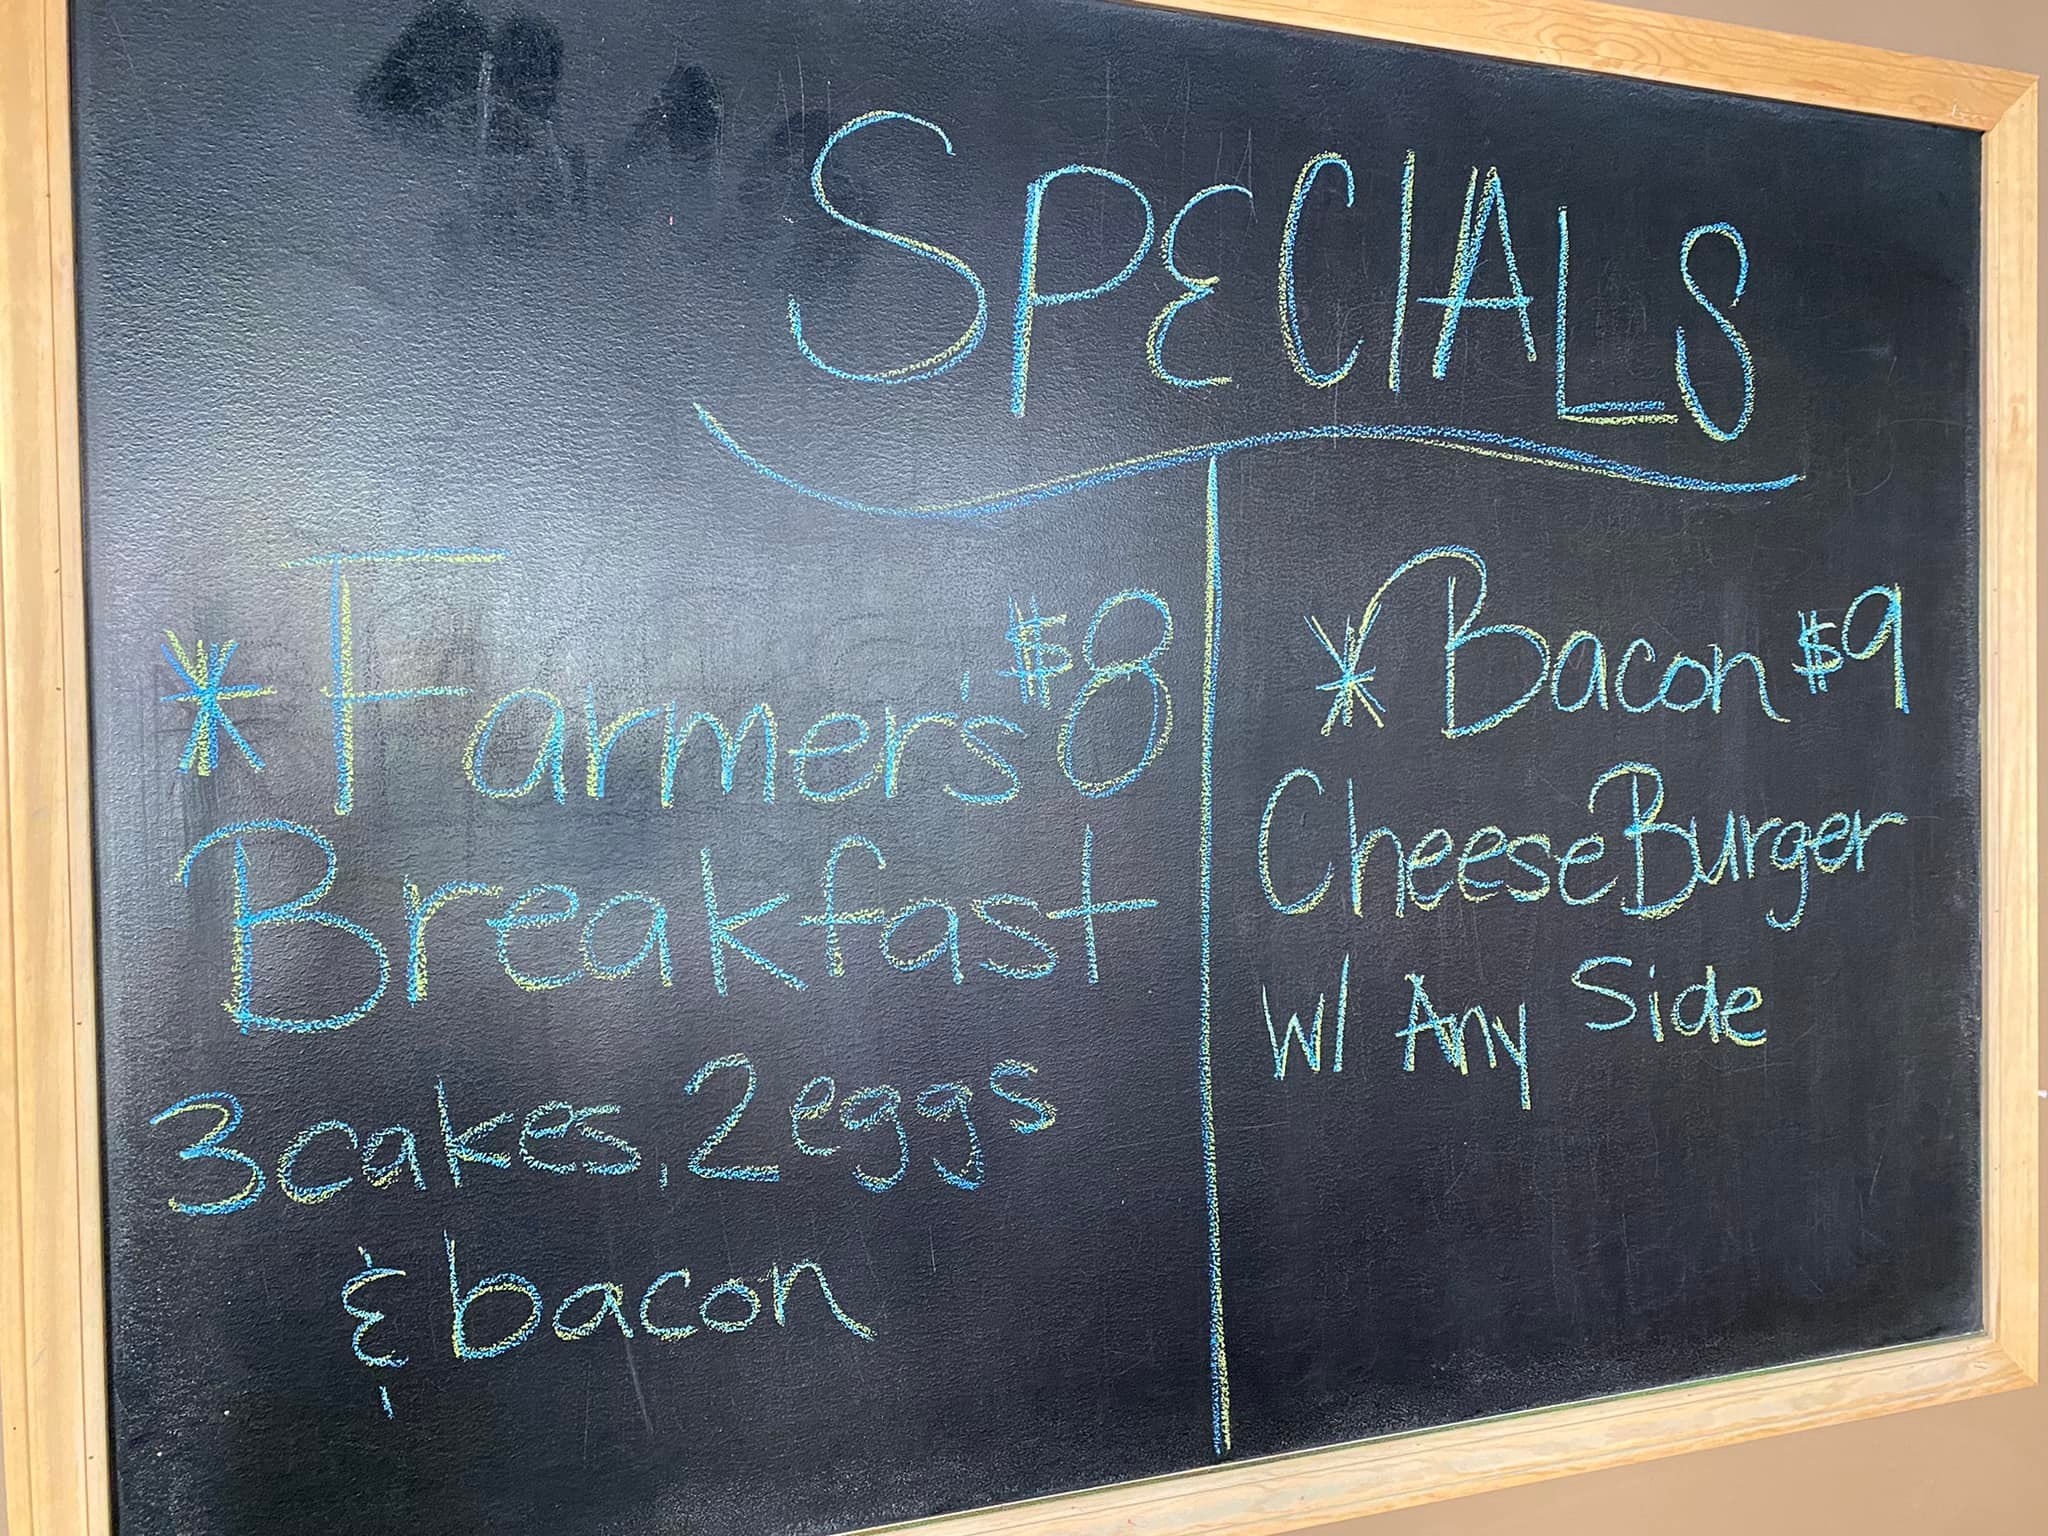 SPECIALS
* Farmer's $8
Breakfast
3 cakes, 2 eggs
& bacon
* Bacon $9
CheeseBurger
W/ Any Side